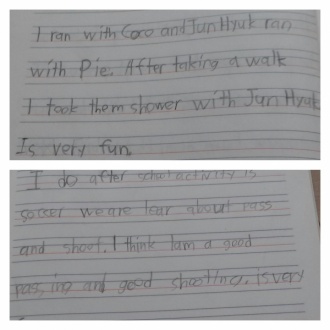 I ran with Coco and Jun Hyuk ran
with Pie. After taking a walk
I took them shower with Jun Hyuk
Is very fun
I do after school activity is
soccer we are lear about pass
and shoot. I think Iam a good
pass, ing and good shooting. Is very